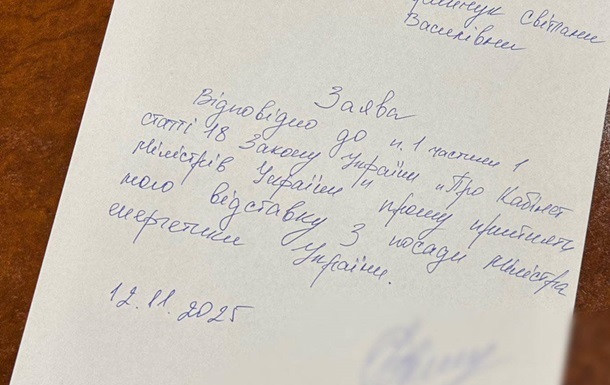 Світлани
Василівни
Заява
Відповідно до п.1 частини 1
статті 18 Закону України „Про Кабінет
Міністрів України" прошу прийняти
мою відставку з посади Міністра
енергетики України.
12.11.2025